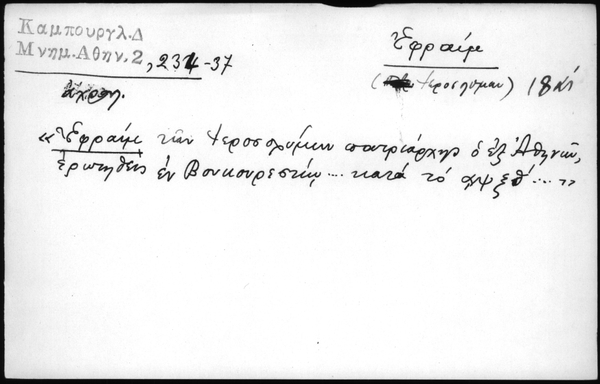 Καμπουργλ.Δ
Μνημ.Αθην.2, 234-37
ἄχρον.
Ἐφραίμ
(Ἱεροσολύμων) 18 αἰ
«Ἐφραίμ τῶν Ἱεροσολύμων πατριάρχης ὁ ἐξ Ἀθηνῶν,
ἐρωτηθείς ἐν Βουκουρεστίῳ.... κατά τό αψξθ΄....»